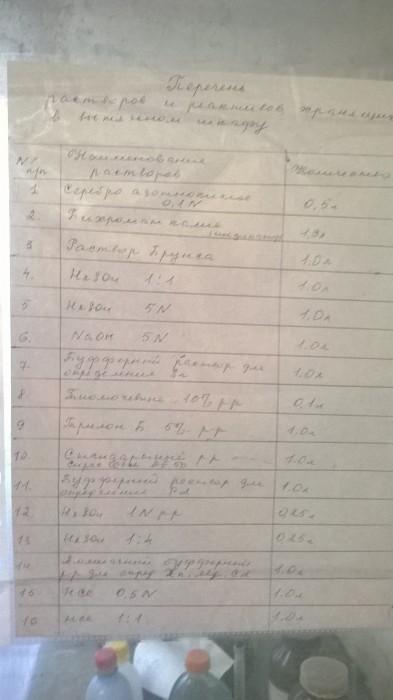 Перечень
растворов и реактивов хранящих
в вытяжном шкафу
№/ Наименование Количество
п/п растворов
1 Серебро азотнокислое 0,5л
0,1N
2. Бихромат калия
индикатор
3 Раствор Брунса 1.0л
4. H2SO4 1:1 1.0л
5 H2SO4 5N 1.0л
6. NaOH 5N 1.0л
7. Буфферный раствор для
определения 1.0л
8 Тиомочевина 10% р-р 0,1л
9 Трилон Б 5% р-р 1.0л
10. Стандартный р-р 1.0л
11. Буфферный раствор для
определения 1.0л
12 H2SO4 1N р-р 0,25л
13 H2SO4 1:4 0,25л
14 Аммиачный буфферный
р-р для опред 1.0л
15 HCl 0,5N 1.0л
16 HCl 1:1 1.0л